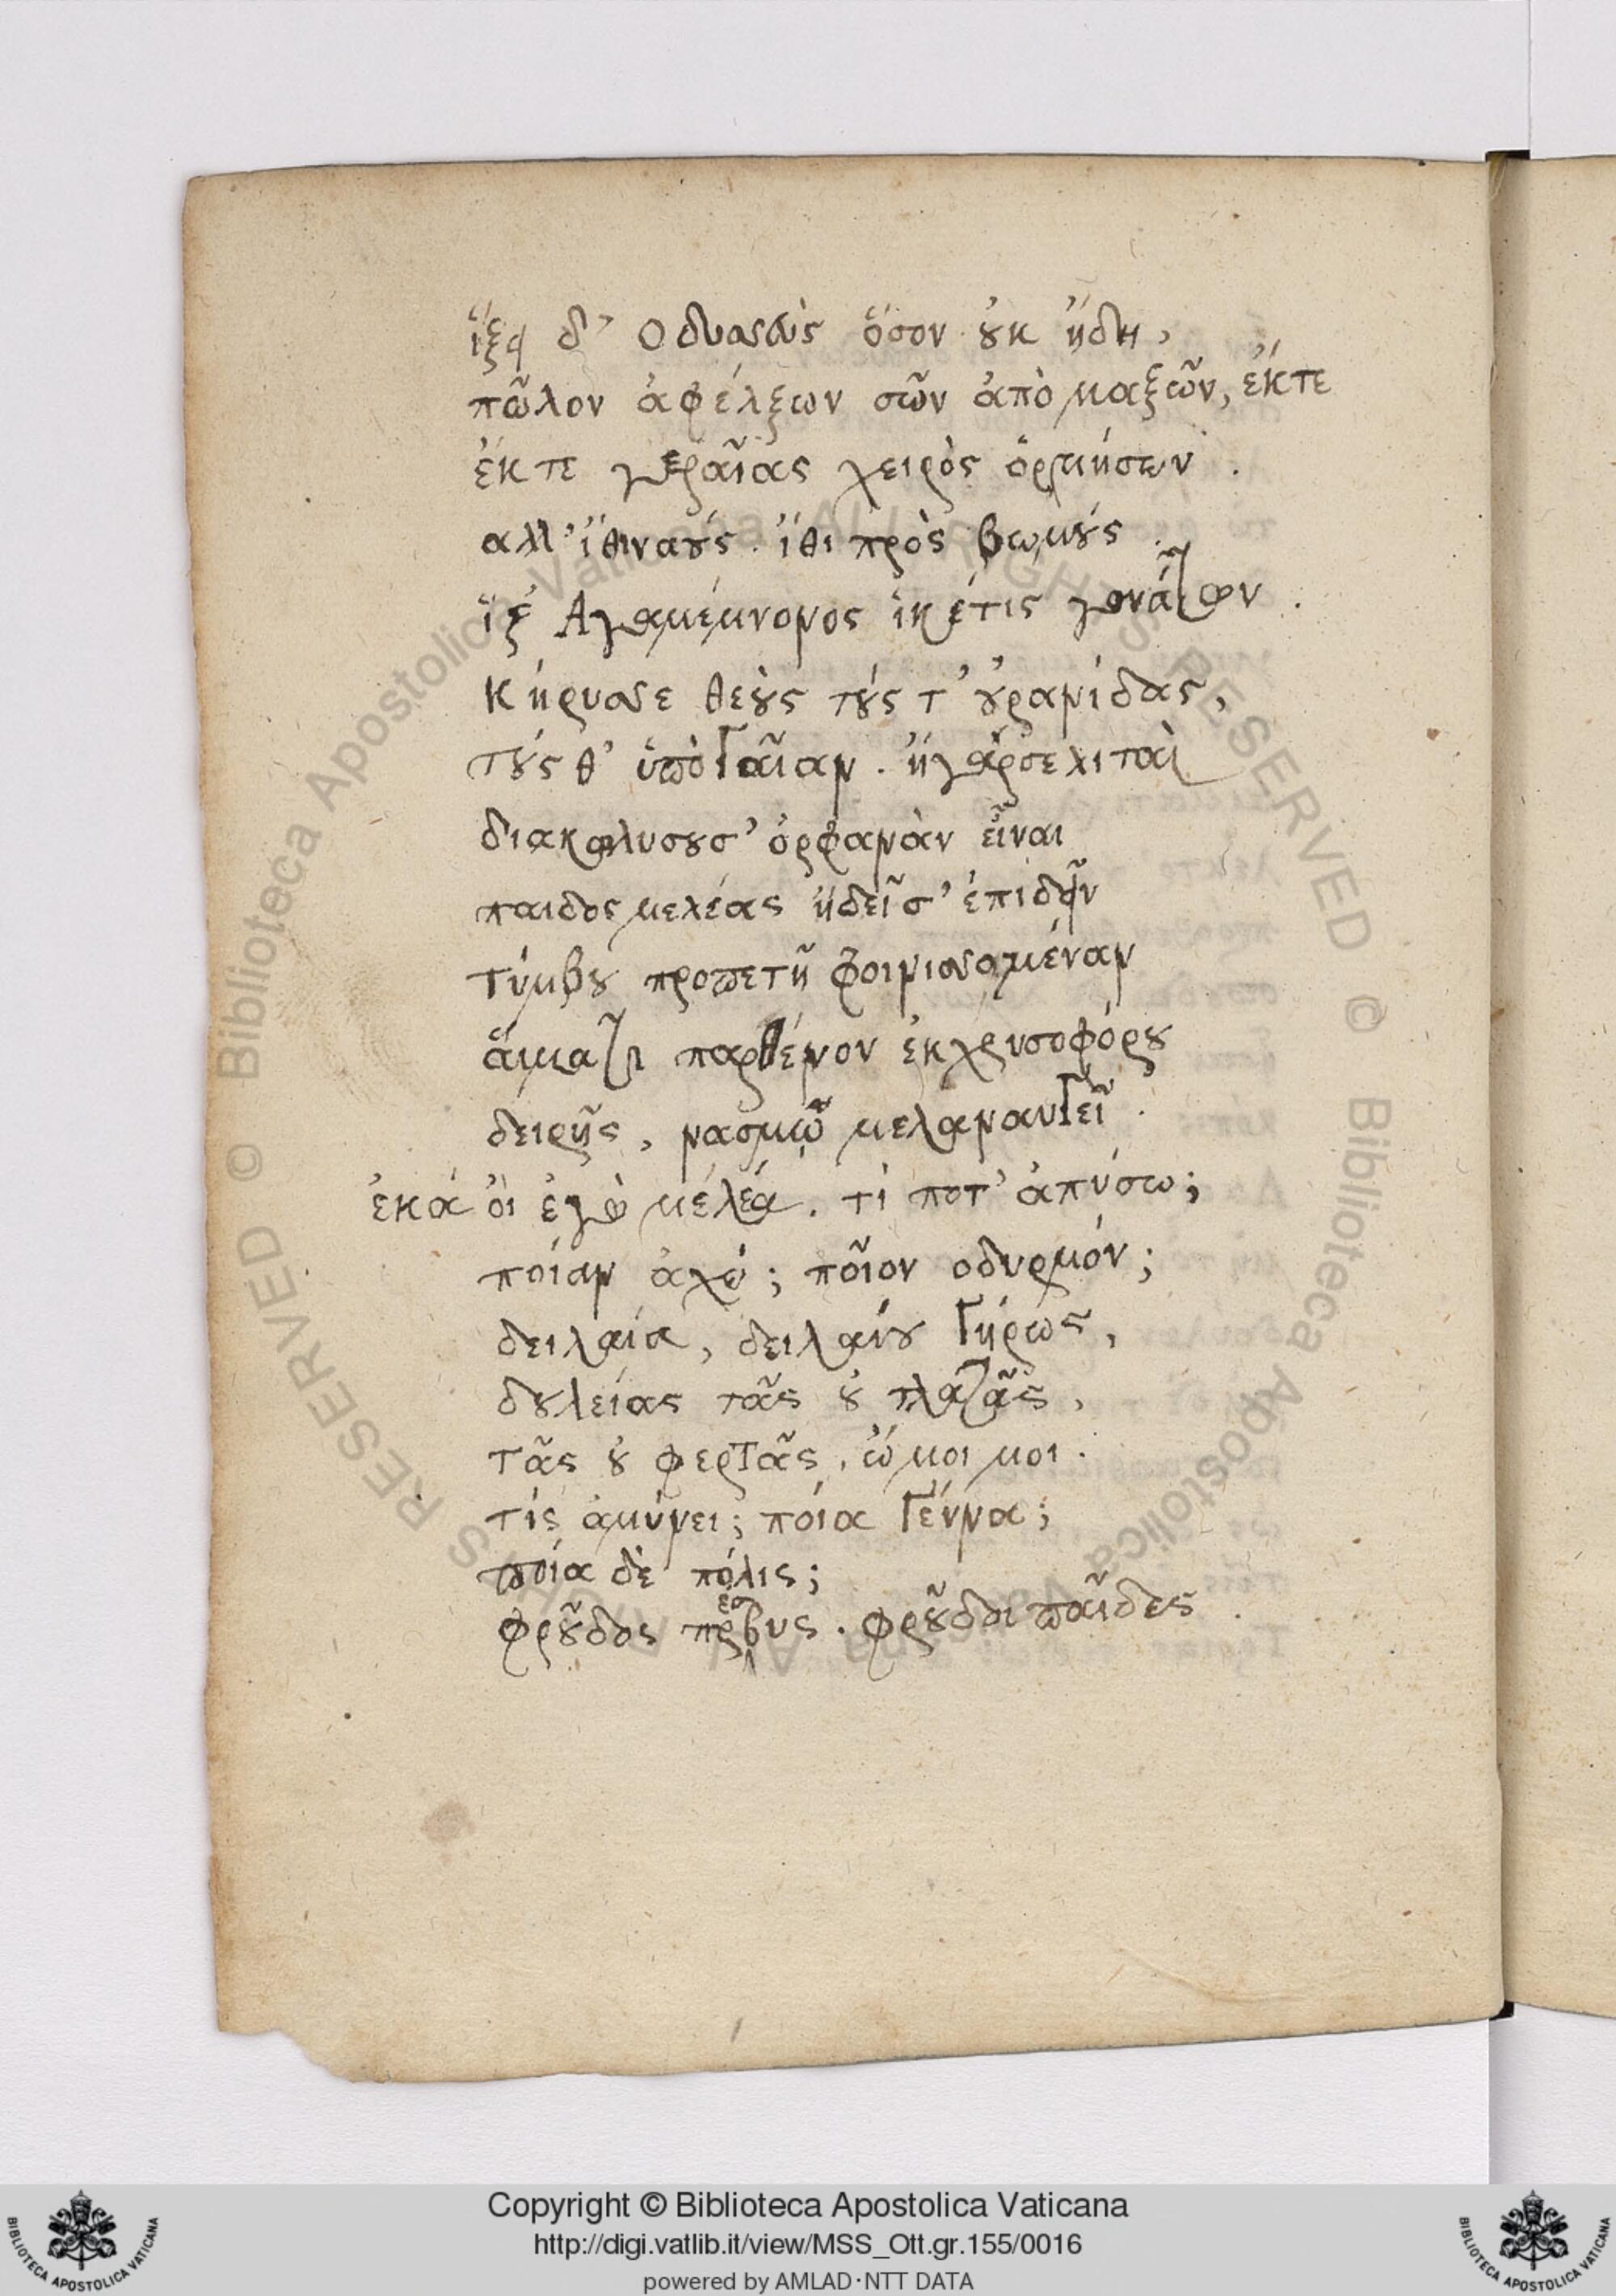 ἵξει δ' Οδυσσεὺς ὅσον οὐκ ἤδη,
πῶλον ἀφέλξων σῶν ἀπὸ μαζῶν, ἐκτε
ἐκ τε γεραῖας χειρὸς ὁρμήσων.
αλλ' ἴθι ναούς. ἴθι πρὸς βωμούς.
ἵζ' Αγαμέμνονος ἱκέτις γονάτων.
κήρυσσε θεοὺς τούς τ' οὐρανίδας,
τούς θ' ὑπὸ γαῖαν. ἢ γάρ σε λιταὶ
διακωλύσουσ' ὀρφανὰν εἶναι
παιδος μελέας ἢ δεῖ σ' ἐπιδεῖν
τύμβου προπετῆ φοινισσομέναν
αἵματι παρθένον ἐκ χρυσοφόρου
δειρῆς, νασμῷ μελαναυγεῖ.
ἑκά οἲ ἐγὼ μέλέα. τί ποτ' ἀπύσω;
ποίαν ἀχώ; ποῖον οδυρμόν;
δειλαία, δειλαίου γήρως,
δουλείας τᾶς οὐ τλατᾶς,
τᾶς οὐ φερτᾶς, ὤ μοι μοι.
τίς ἀμύνει; ποία γέννα;
ποία δὲ πόλις;
φροῦδος πρέσβυς. φροῦδοι παῖδες.
Copyright © Biblioteca Apostolica Vaticana
http://digi.vatlib.it/view/MSS_Ott.gr.155/0016
powered by AMLAD·NTT DATA